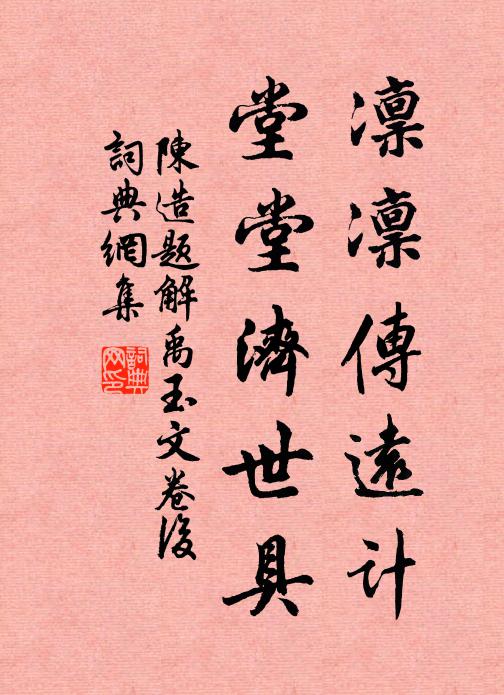 凛凛傳遠計
堂堂濟世具
陳造題解禹玉文卷後
詞典網集
詞典网印